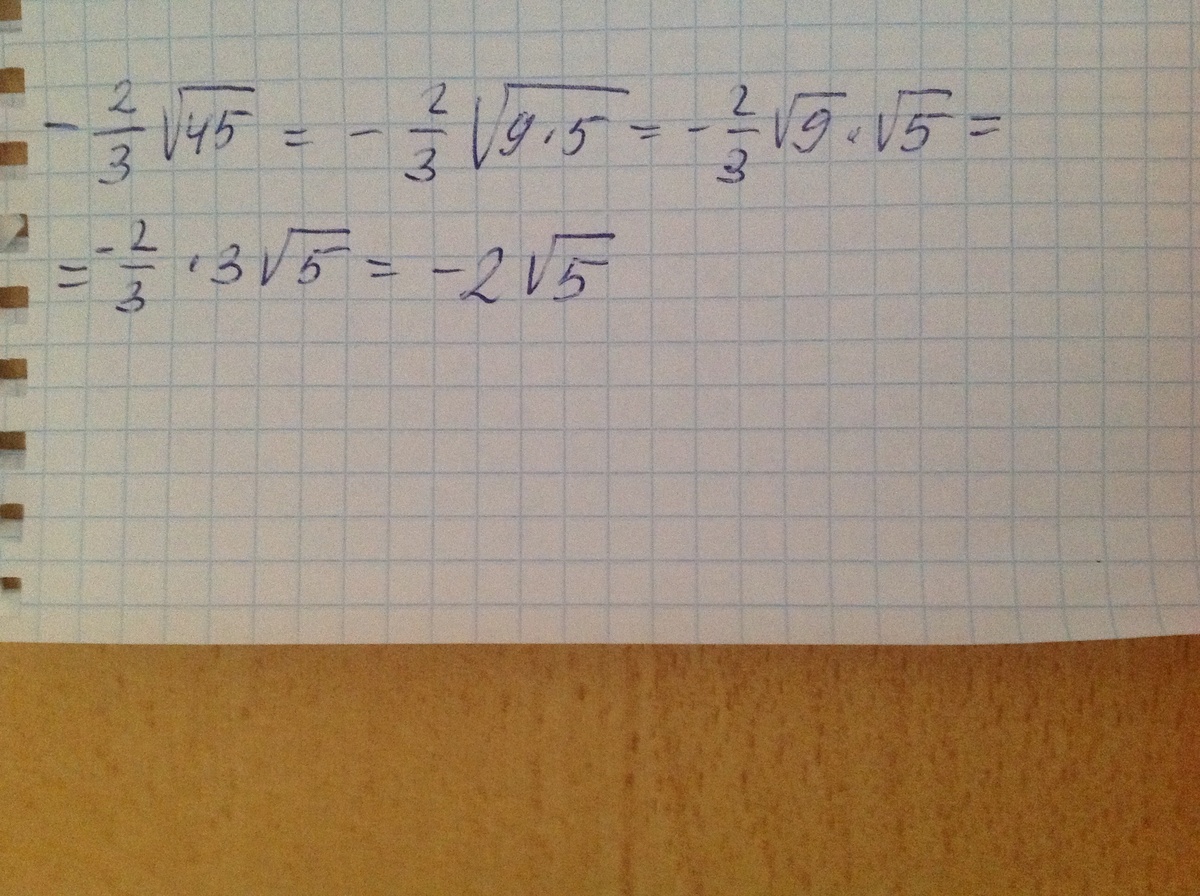 -2/3 √45 = -2/3 √(9·5) = -2/3 √9 · √5 =
= -2/3 · 3√5 = -2√5